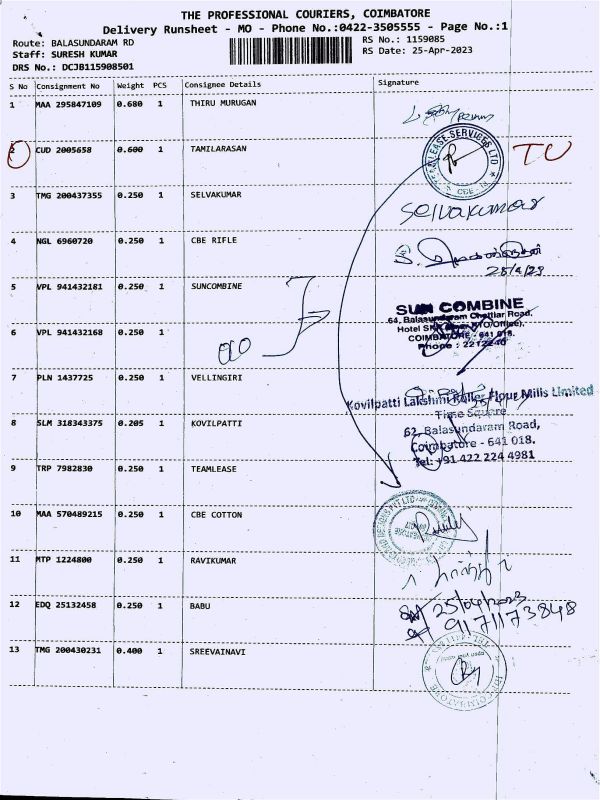 THE PROFESSIONAL COURIERS, COIMBATORE
Delivery Runsheet - MO - Phone No.:0422-3505555 - Page No.:1
Route: BALASUNDARAM RD
RS No.: 1159085
Staff: SURESH KUMAR
RS Date: 25-Apr-2023
DRS No.: DCJB115908501
S No Consignment No Weight PCS Consignee Details Signature
1 MAA 295847109 0.680 1 THIRU MURUGAN
2 CUD 2005658 0.600 1 TAMILARASAN
3 TMG 200437355 0.250 1 SELVAKUMAR
Selvakumar
4 NGL 6960720 0.250 1 CBE RIFLE
25/4/23
5 VPL 941432181 0.250 1 SUNCOMBINE
SUN COMBINE
64, Balasundaram Chettiar Road,
COIMBATORE - 641 018.
Phone : 2212240
6 VPL 941432168 0.250 1
7 PLN 1437725 0.250 1 VELLINGIRI
Kovilpatti Lakshmi Roller Flour Mills Limited
Time Square
62, Balasundaram Road,
Coimbatore - 641 018.
Tel: +91 422 224 4981
8 SLM 318343375 0.205 1 KOVILPATTI
9 TRP 7982830 0.250 1 TEAMLEASE
10 MAA 570489215 0.250 1 CBE COTTON
11 MTP 1224800 0.250 1 RAVIKUMAR
12 EDQ 25132458 0.250 1 BABU
25/04/2023
9171173848
13 TMG 200430231 0.400 1 SREEVAINAVI